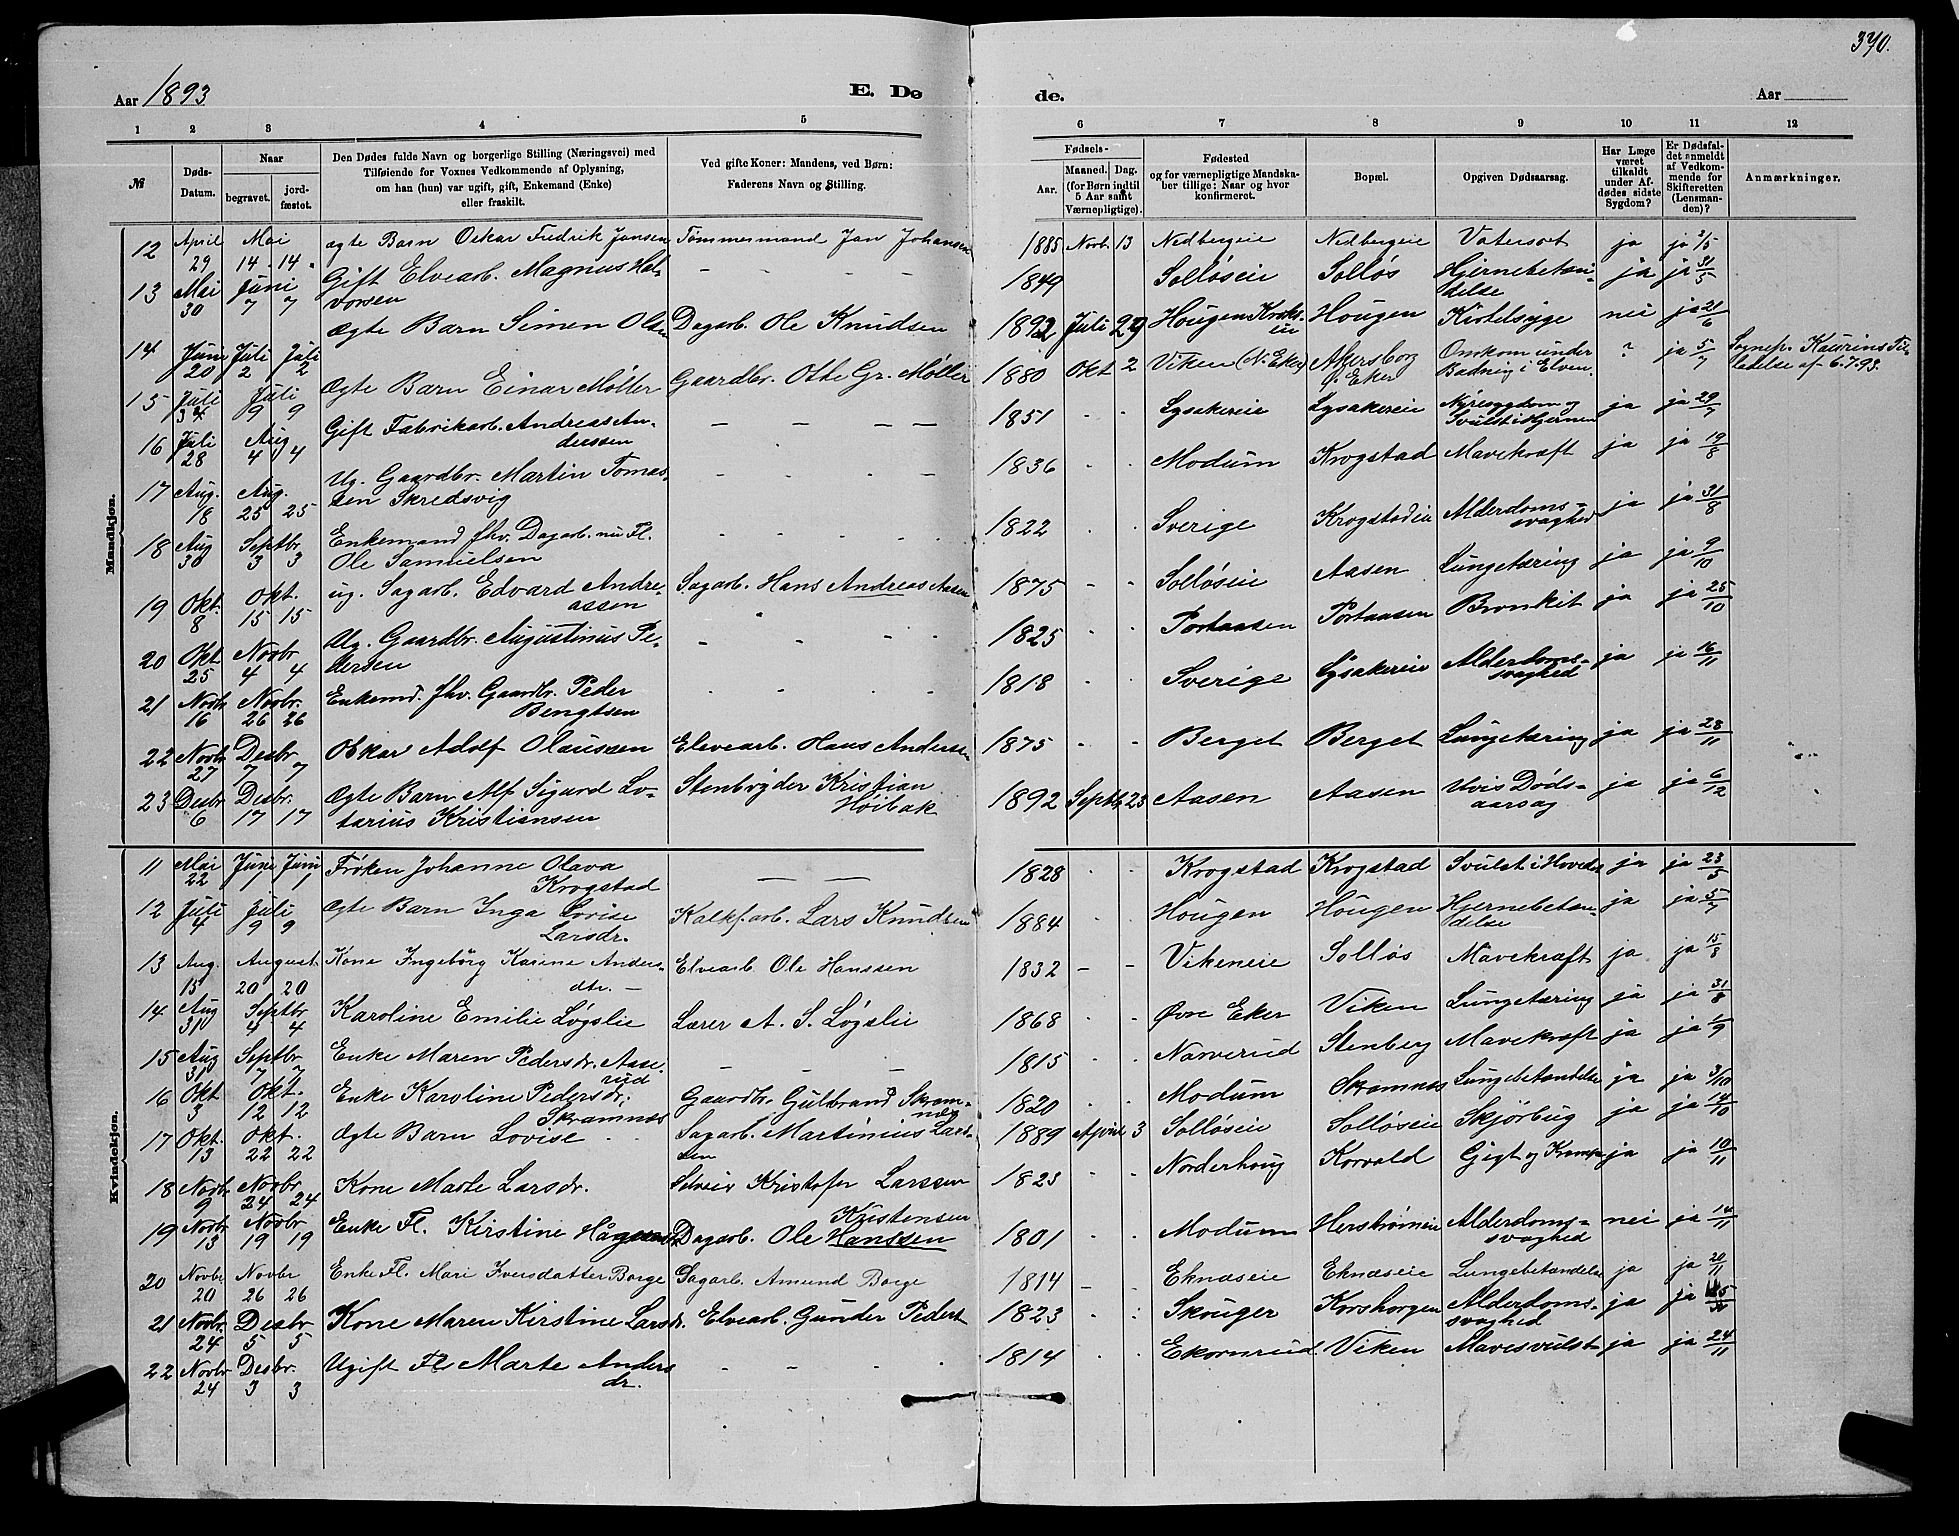 370.
Aar 1893
E. Dø
de.
Aar
1 2 3 4 5 6 7 8 9 10 11 12
№
Døds-Datum.
Naar
begravet.
jordfæstet.
Den Dødes fulde Navn og borgerlige Stilling (Næringsvei) med
Tilføiende for Voxnes Vedkommende af Oplysning,
om han (hun) var ugift, gift, Enkemand (Enke)
eller fraskilt.
Ved gifte Koner: Mandens, ved Børn:
Faderens Navn og Stilling.
Fødsels-
Aar.
Maaned.
Dag.
(for Børn indtil
5 Aar samt
Værnepligtige).
Fødested
og for værnepligtige Mandska-
ber tillige: Naar og hvor
konfirmeret.
Bopæl.
Opgiven Dødsaarsag.
Har Læge
været
tilkaldt
under Af-
dødes sidste
Sygdom?
Er Dødsfal-
det anmeldt
af Vedkom-
mende for
Skifteretten
(Lensman-
den)?
Anmærkninger.
Mandkjøn.
12 April 29 Mai 14 - 14 ægte Barn Oskar Fredrik Jansen Tømmermand Jan Johansen 1885 Novb. 13 Nedbergeie Nedbergeie Vatersot ja ja 2/5
13 Mai 30 Juni 7 7 Gift Elvearb. Magnus Hal-
vorsen - - - 1849 Solløseie Solløs Hjernebetæn-
delse ja ja 31/5
14 Juni 20 Juli 2 Juli 2 Ægte Barn Simen Olsen Dagarb. Ole Knudsen 1892 Juli 29 Hougen Hougen Kirtelsyge nei ja 21/6
15 Juli Juli 9 9 Ægte Barn Einar Møller Gaardbr. Otte Gr. Møller 1880 Okt 2 Viken (N. Eker) Akersborg
Ø. Eker Omkom under
Badning i Elven. ? ja 5/7 Sognep. Kaurins Til-
ladelse af 6.7.93.
16 Juli 28 Aug 4 4 Gift Fabrikarb. Andreas An-
derssen - - - - 1851 - - Lysakereie Lysakereie Nyresygdom og
Svulst i Hjernen ja ja 29/7
17 Aug. 18 Aug. 25 25 Ug. Gaardbr. Martin Tomas-
sen Skredsvig - - - 1836 - - Modum Krogstad Mavekræft ja ja 19/8
18 Aug 30 Septbr 3 3 Enkemand fhv. Dagarb. nu Fl.
Ole Samuelsen - - - - 1822 - - Sverige Krogstadeie Alderdoms-
svaghed ja ja 31/8
19 Okt. 8 Okt. 15 15 ug. Sagarb. Edvard Andre-
assen Sagarb. Hans Andreas Aasen 1875 - - Solløseie Aasen Lungetæring ja ja 9/10
20 Okt 25 Novbr 4 4 Ug. Gaardbr. Augustinus Pe-
dersen - - - - 1825 - - Portaasen Portaasen Bronkit ja ja 25/10
21 Novb 16 Novbr. 26 26 Enkemd. fhv. Gaardbr. Peder
Bengtsen - - - - 1818 - - Sverige Lysakereie Alderdoms-
svaghed ja ja 16/11
22 Novb 27 Desbr 7 7 Oskar Adolf Olaussen Elvearb. Hans Andersen 1875 - - Berget Berget Lungetæring ja ja 28/11
23 Desbr 6 Desbr. 17 17 Ægte Barn Alf Sigurd Lo-
tarius Kristiansen Stenbryder Kristian
Høibak 1892 Septb 23 Aasen Aasen Uvis Døds-
aarsag ja ja 6/12
Kvindekjøn.
11 Mai 22 Juni 1 Juni 1 Frøken Johanne Olava
Krogstad - - 1828 - - Krogstad Krogstad Svulst i Hovedet ja ja 23/5
12 Juli 4 Juli 9 9 Ægte Barn Inga Lovise
Larsdr. Kalkf.arb. Lars Knudsen 1884 - - Hougen Hougen Hjernebetæn-
delse ja ja 5/7
13 Aug. 15 August 20 20 Kone Ingebørg Karine Anders-
dtr. - Elvearb Ole Hanssen 1832 - - Vikeneie Solløs Mavekræft ja ja 15/8
14 Aug 31 Septbr 4 4 Karoline Emilie Løgslie Lærer A. S. Løgslie 1868 - - Øvre Eker Viken Lungetæring ja ja 31/8
15 Aug 31 Septbr 7 7 Enke Maren Pedersdr. Aase-
rud - - - 1815 - - Narverud Stenberg Mavekræft ja ja 1/9
16 Okt 3 Okt. 12 12 Enke Karoline Pedersdr.
Skramnæs Gaardbr. Gulbrand Skram-
næs 1820 - - Modum Skramnæs Lungebetændelse ja ja 3/10
17 Okt. 13 Okt. 22 22 Ægte Barn Lovise Sagarb. Martinius Lars-
sen 1889 April 3 Solløseie Solløseie Skjørbug ja ja 14/10
18 Novb 9 Novbr 24 24 Kone Marte Larsdr. Selveier Kristofer Larssen 1823 - - Norderhoug Korvald Gigt og Krampe ja ja 10/11
19 Novbr 13 Novbr 19 19 Enke Fl. Kirstine Dagarb. Ole Hanssen
Kristensen 1801 - - Modum Herstrømeie Alderdoms-
svaghed nei ja 14/11
20 Novbr 20 Novbr 26 26 Enke Fl. Mari Iversdatter Borge Sagarb. Amund Borge 1814 - - Eknæseie Eknæseie Lungebetændelse ja ja 20/11
21 Novbr 24 Desbr 5 5 Kone Maren Kirstine Larsdr. Elvearb. Gunder Peders 1823 - Skouger Korshorgen Alderdoms-
svaghed ja ja
22 Novbr 24 Desbr. 3 3 Ugift Fl Marte Anders
dr. - - - - 1814 - - Ekornrud Viken Mavesvulst ja ja 24/11